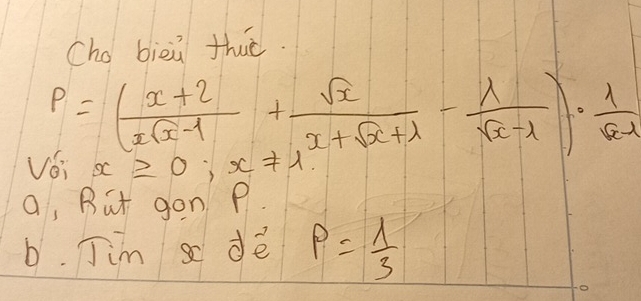 Cho biểu thức.
P = (x+2/x√x-1 + √x/x+√x+1 - 1/√x-1) . 1/√x-1
Với x ≥ 0 ; x ≠ 1.
a, Rút gọn P.
b. Tìm x để P = 1/3